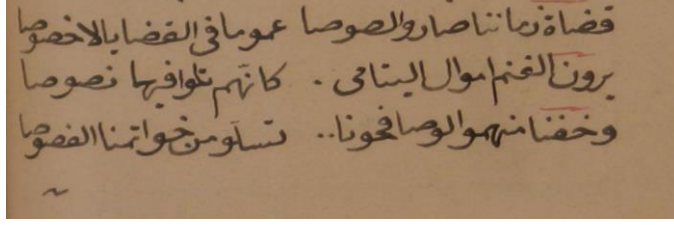 قضاة زماننا صاروا لصوصا عموما فى القضايا لا خصوصا
يرون الغنم اموال اليتامى . كانهم تلوا فيها نصوصا
وخفنا منهموا لو صافحونا .. تسلو من خواتمنا الفصوصا